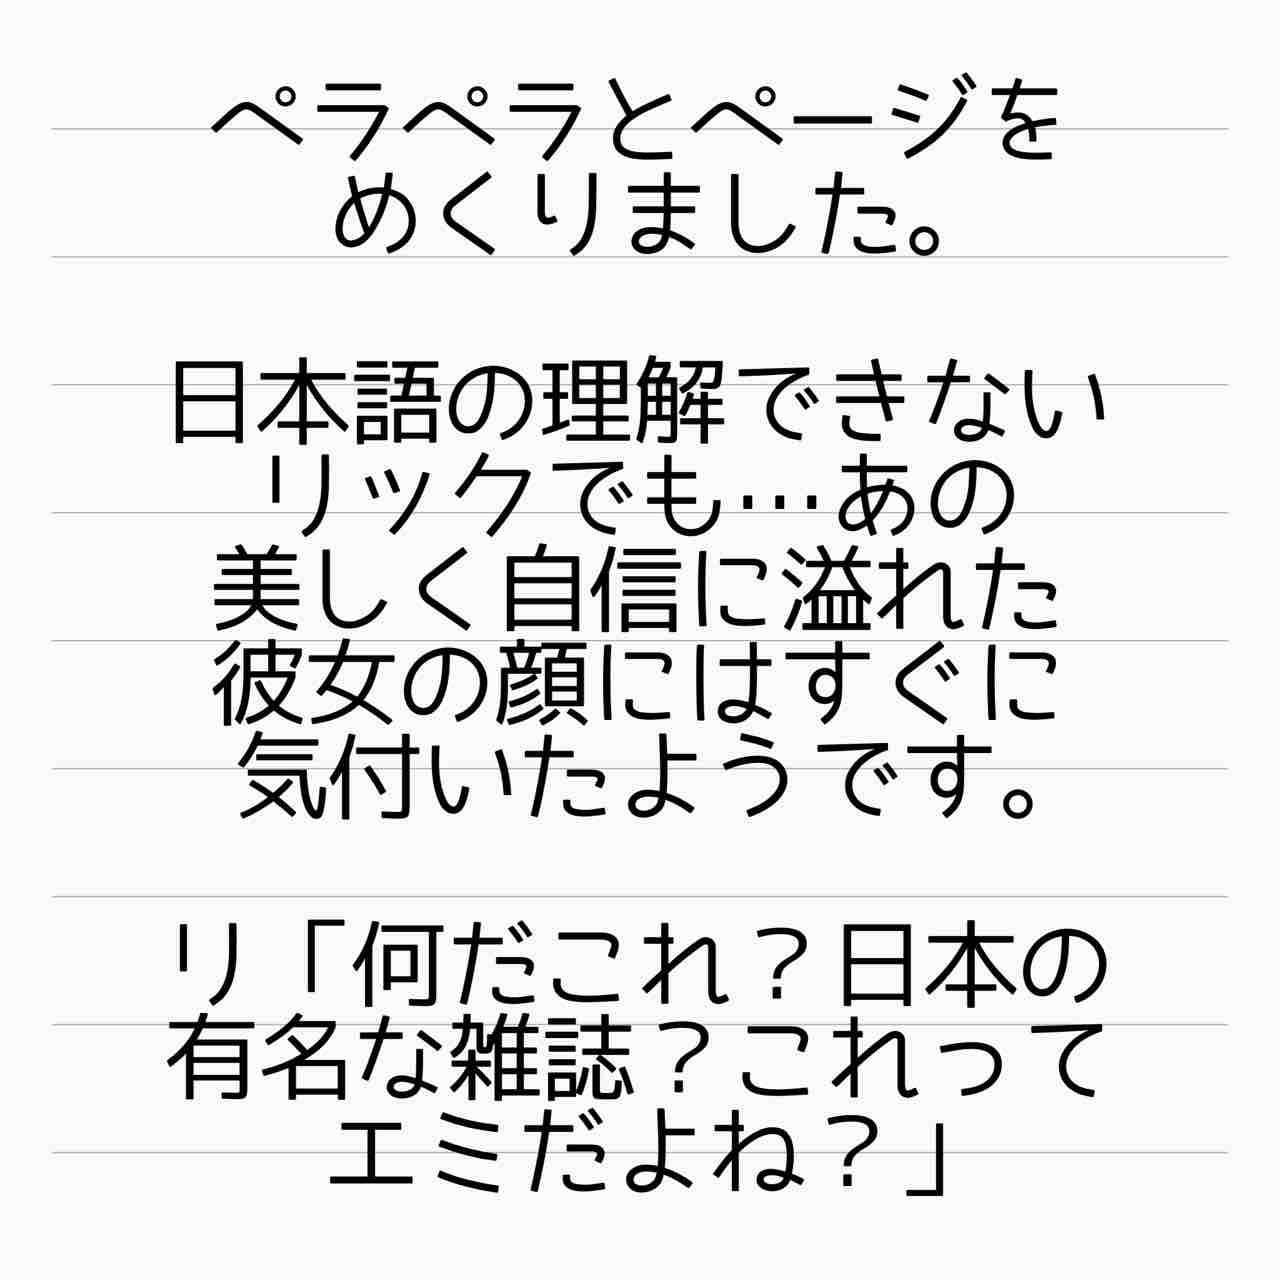 ペラペラとページを
めくりました。
日本語の理解できない
リックでも…あの
美しく自信に溢れた
彼女の顔にはすぐに
気付いたようです。
リ「何だこれ？日本の
有名な雑誌？これって
エミだよね？」